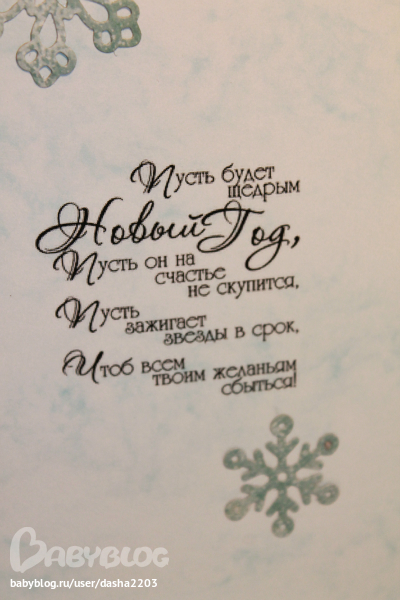 Пусть будет
щедрым
Новый Год,
Пусть он на
счастье
не скупится,
Пусть
зажигает
звезды в срок,
Чтоб всем
твоим желаньям
сбыться!
BABYBLOG
babyblog.ru/user/dasha2203